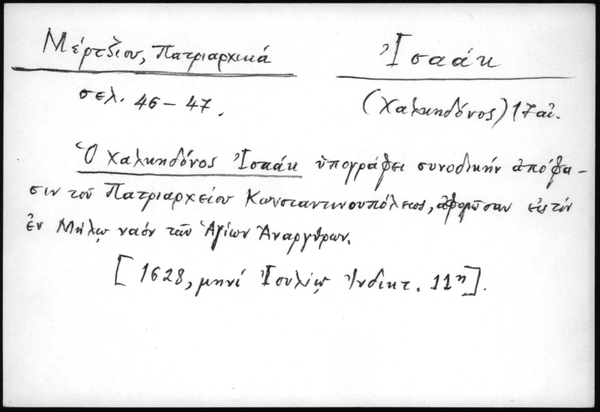 Μέρτζιου, Πατριαρχικά
σελ. 46-47.
Ἰσαάκ
(Χαλκηδόνος) 17 αἰ.
Ὁ Χαλκηδόνος Ἰσαάκ ὑπογράφει συνοδικήν ἀπόφα-
σιν τοῦ Πατριαρχείου Κωνσταντινουπόλεως, ἀφορῶσαν εἰς τόν
ἐν Μήλῳ ναόν τῶν Ἁγίων Ἀναργύρων.
[1628, μηνί Ἰουλίῳ Ἰνδικτ. 11η].